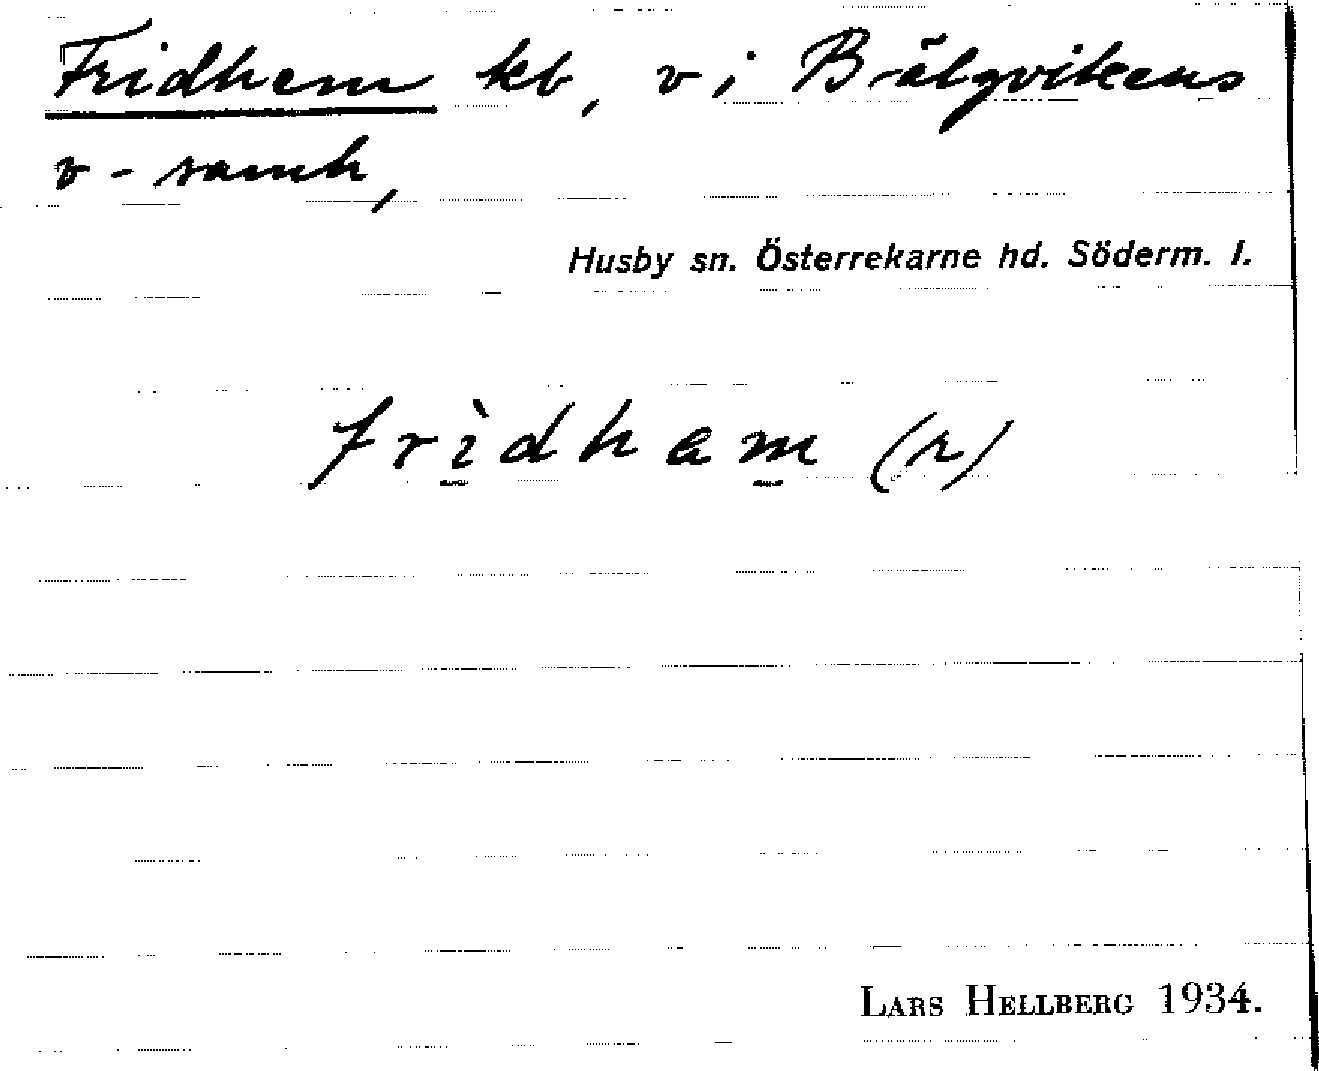 Fridhem kb, v i Bälgvikens
v-samh,
Husby sn. Österrekarne hd. Söderm. l.
frìdham (r)
LARS HELLBERG 1934.